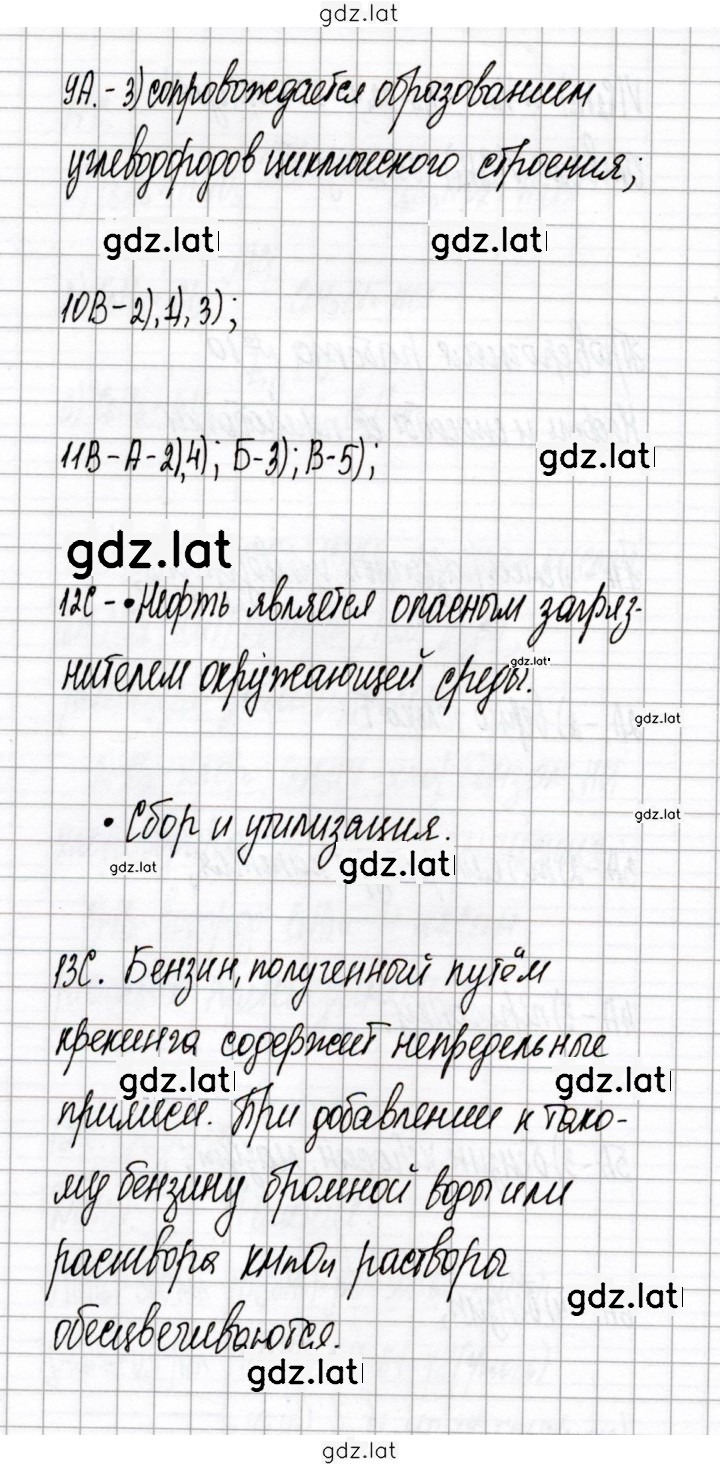 gdz.lat
9А.-3) сопровождается образованием
углеводородов циклического строения;
gdz.lat gdz.lat
10В-2), 1), 3);
11В-А-2),4); Б-3); В-5);
gdz.lat
gdz.lat
12С-•Нефть является опасным загряз-
нителем окружающей среды.
gdz.lat
gdz.lat
gdz.lat
• Сбор и утилизация.
gdz.lat
gdz.lat
13С. Бензин, полученный путём
крекинга содержит непредельные
gdz.lat gdz.lat
примеси. При добавлении к тако-
му бензину бромной воды или
раствора kmno4 растворы
gdz.lat
обесцвечиваются.
gdz.lat
gdz.lat